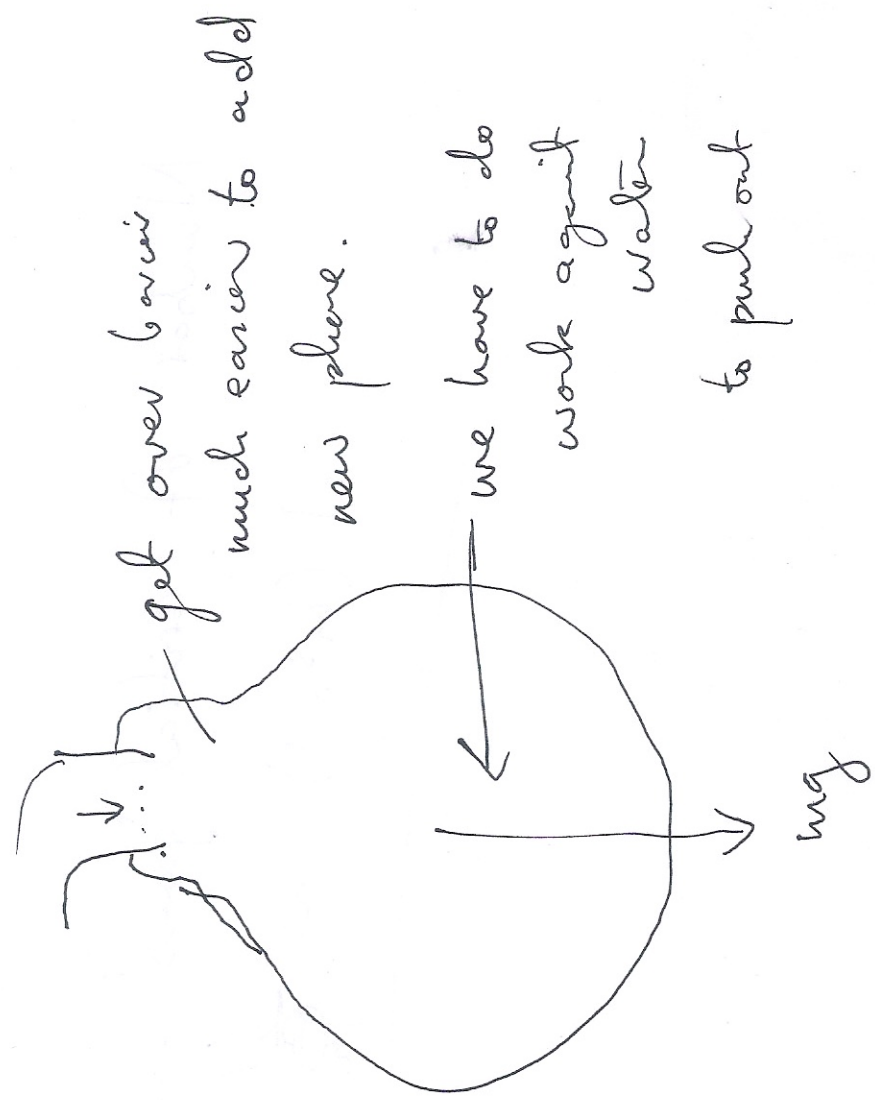 get over barrier
much easier to add
new phase.
we have to do
work against
water
to push out
mg